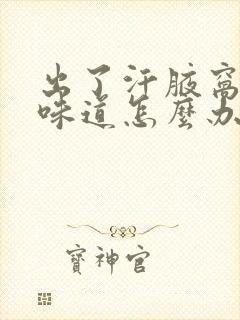 出了汗腋窝
味道怎麼办
寶神官